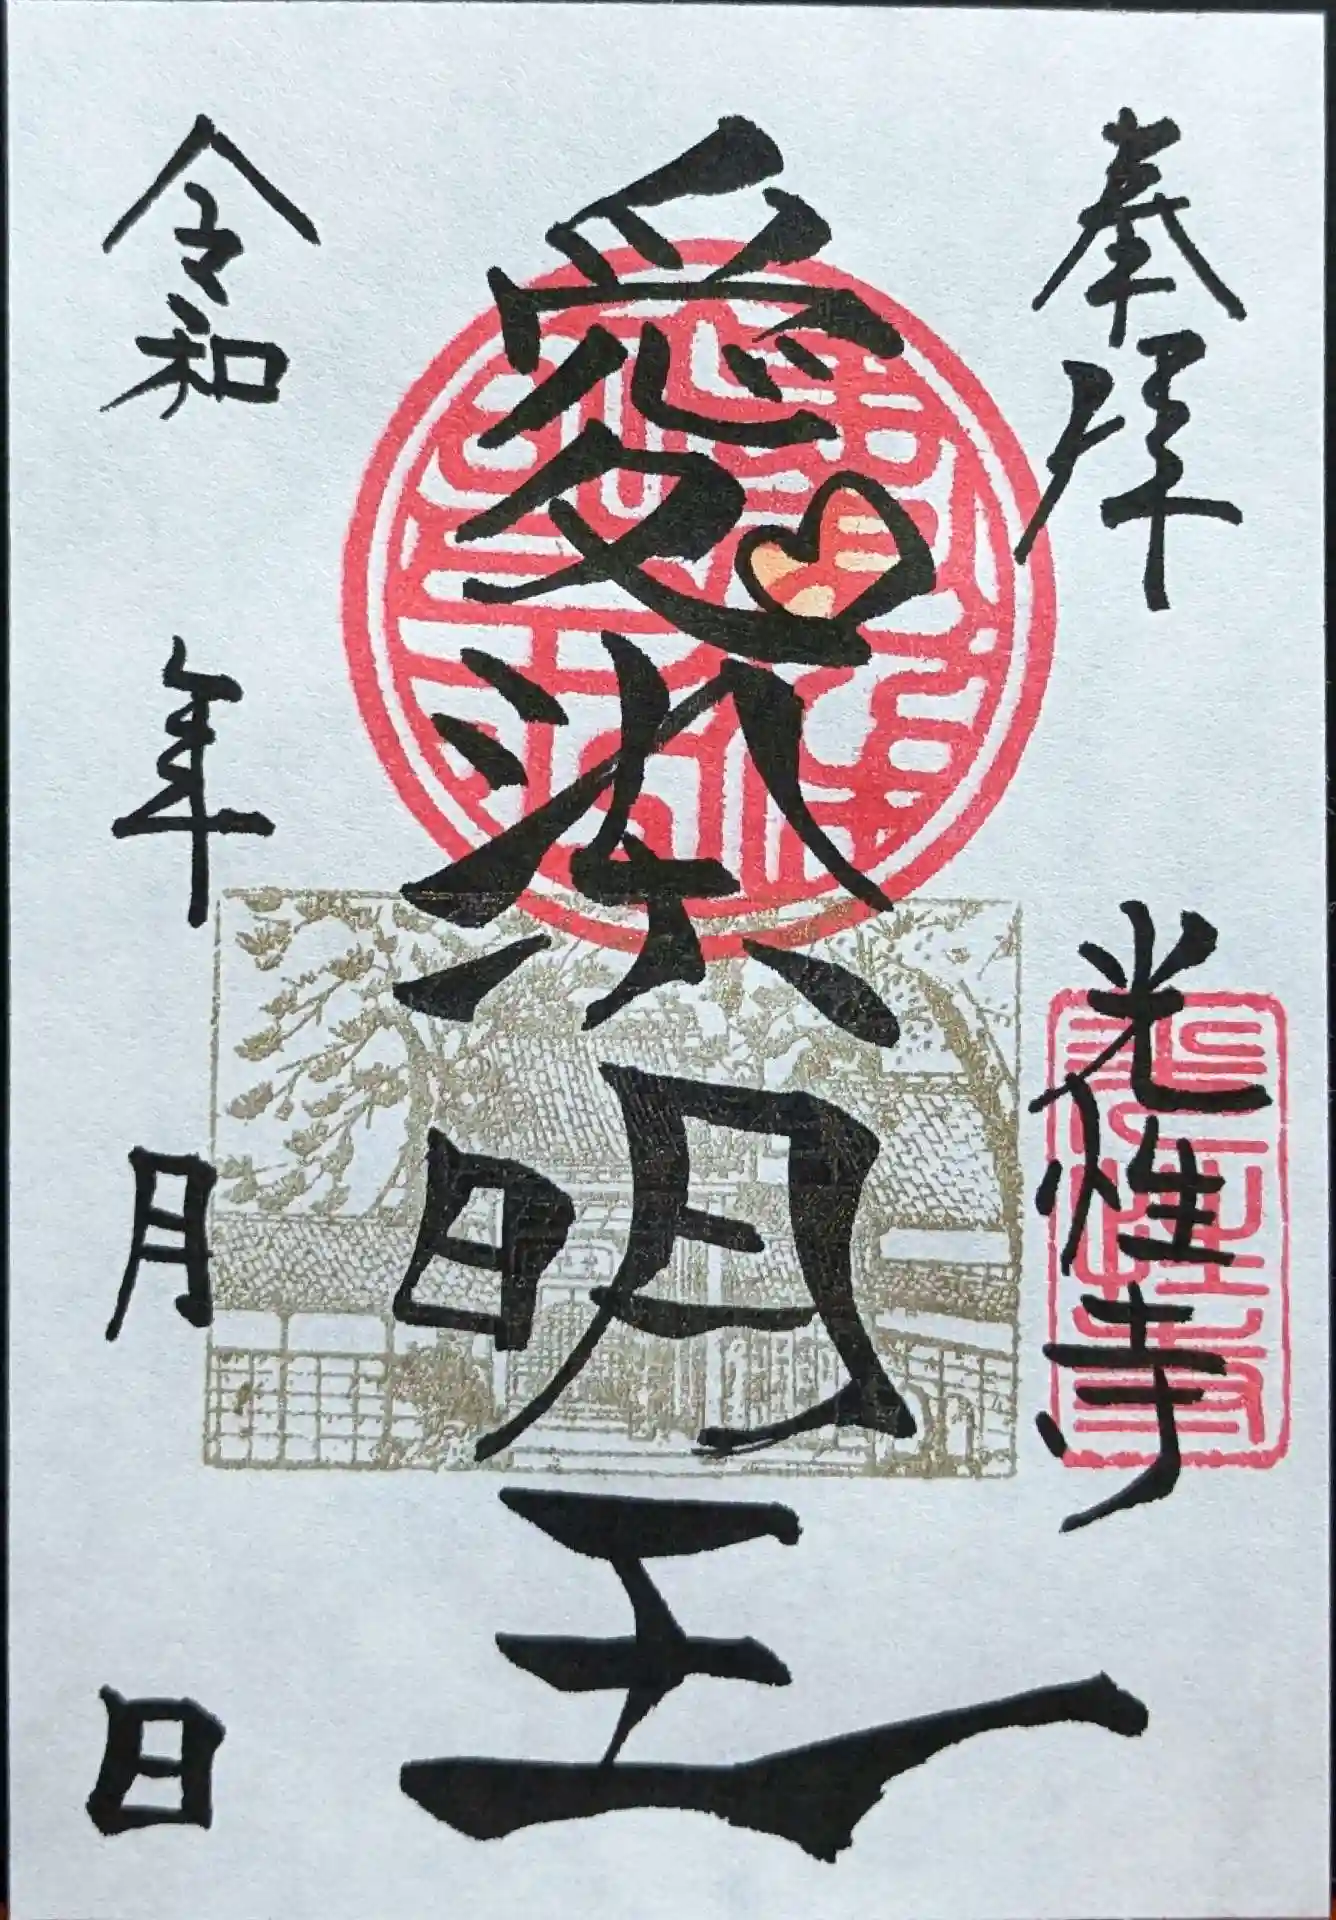 奉拝
光性寺
愛染明王
令和 年 月 日
光性寺